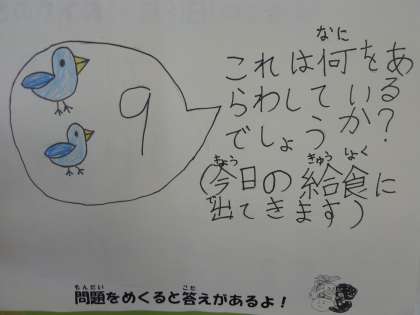 9
なに
これは何をあ
らわしている
でしょうか?
きょう きゅう しょく
(今日の給食に
で
出てきます)
もんだい こた
問題をめくると答えがあるよ！